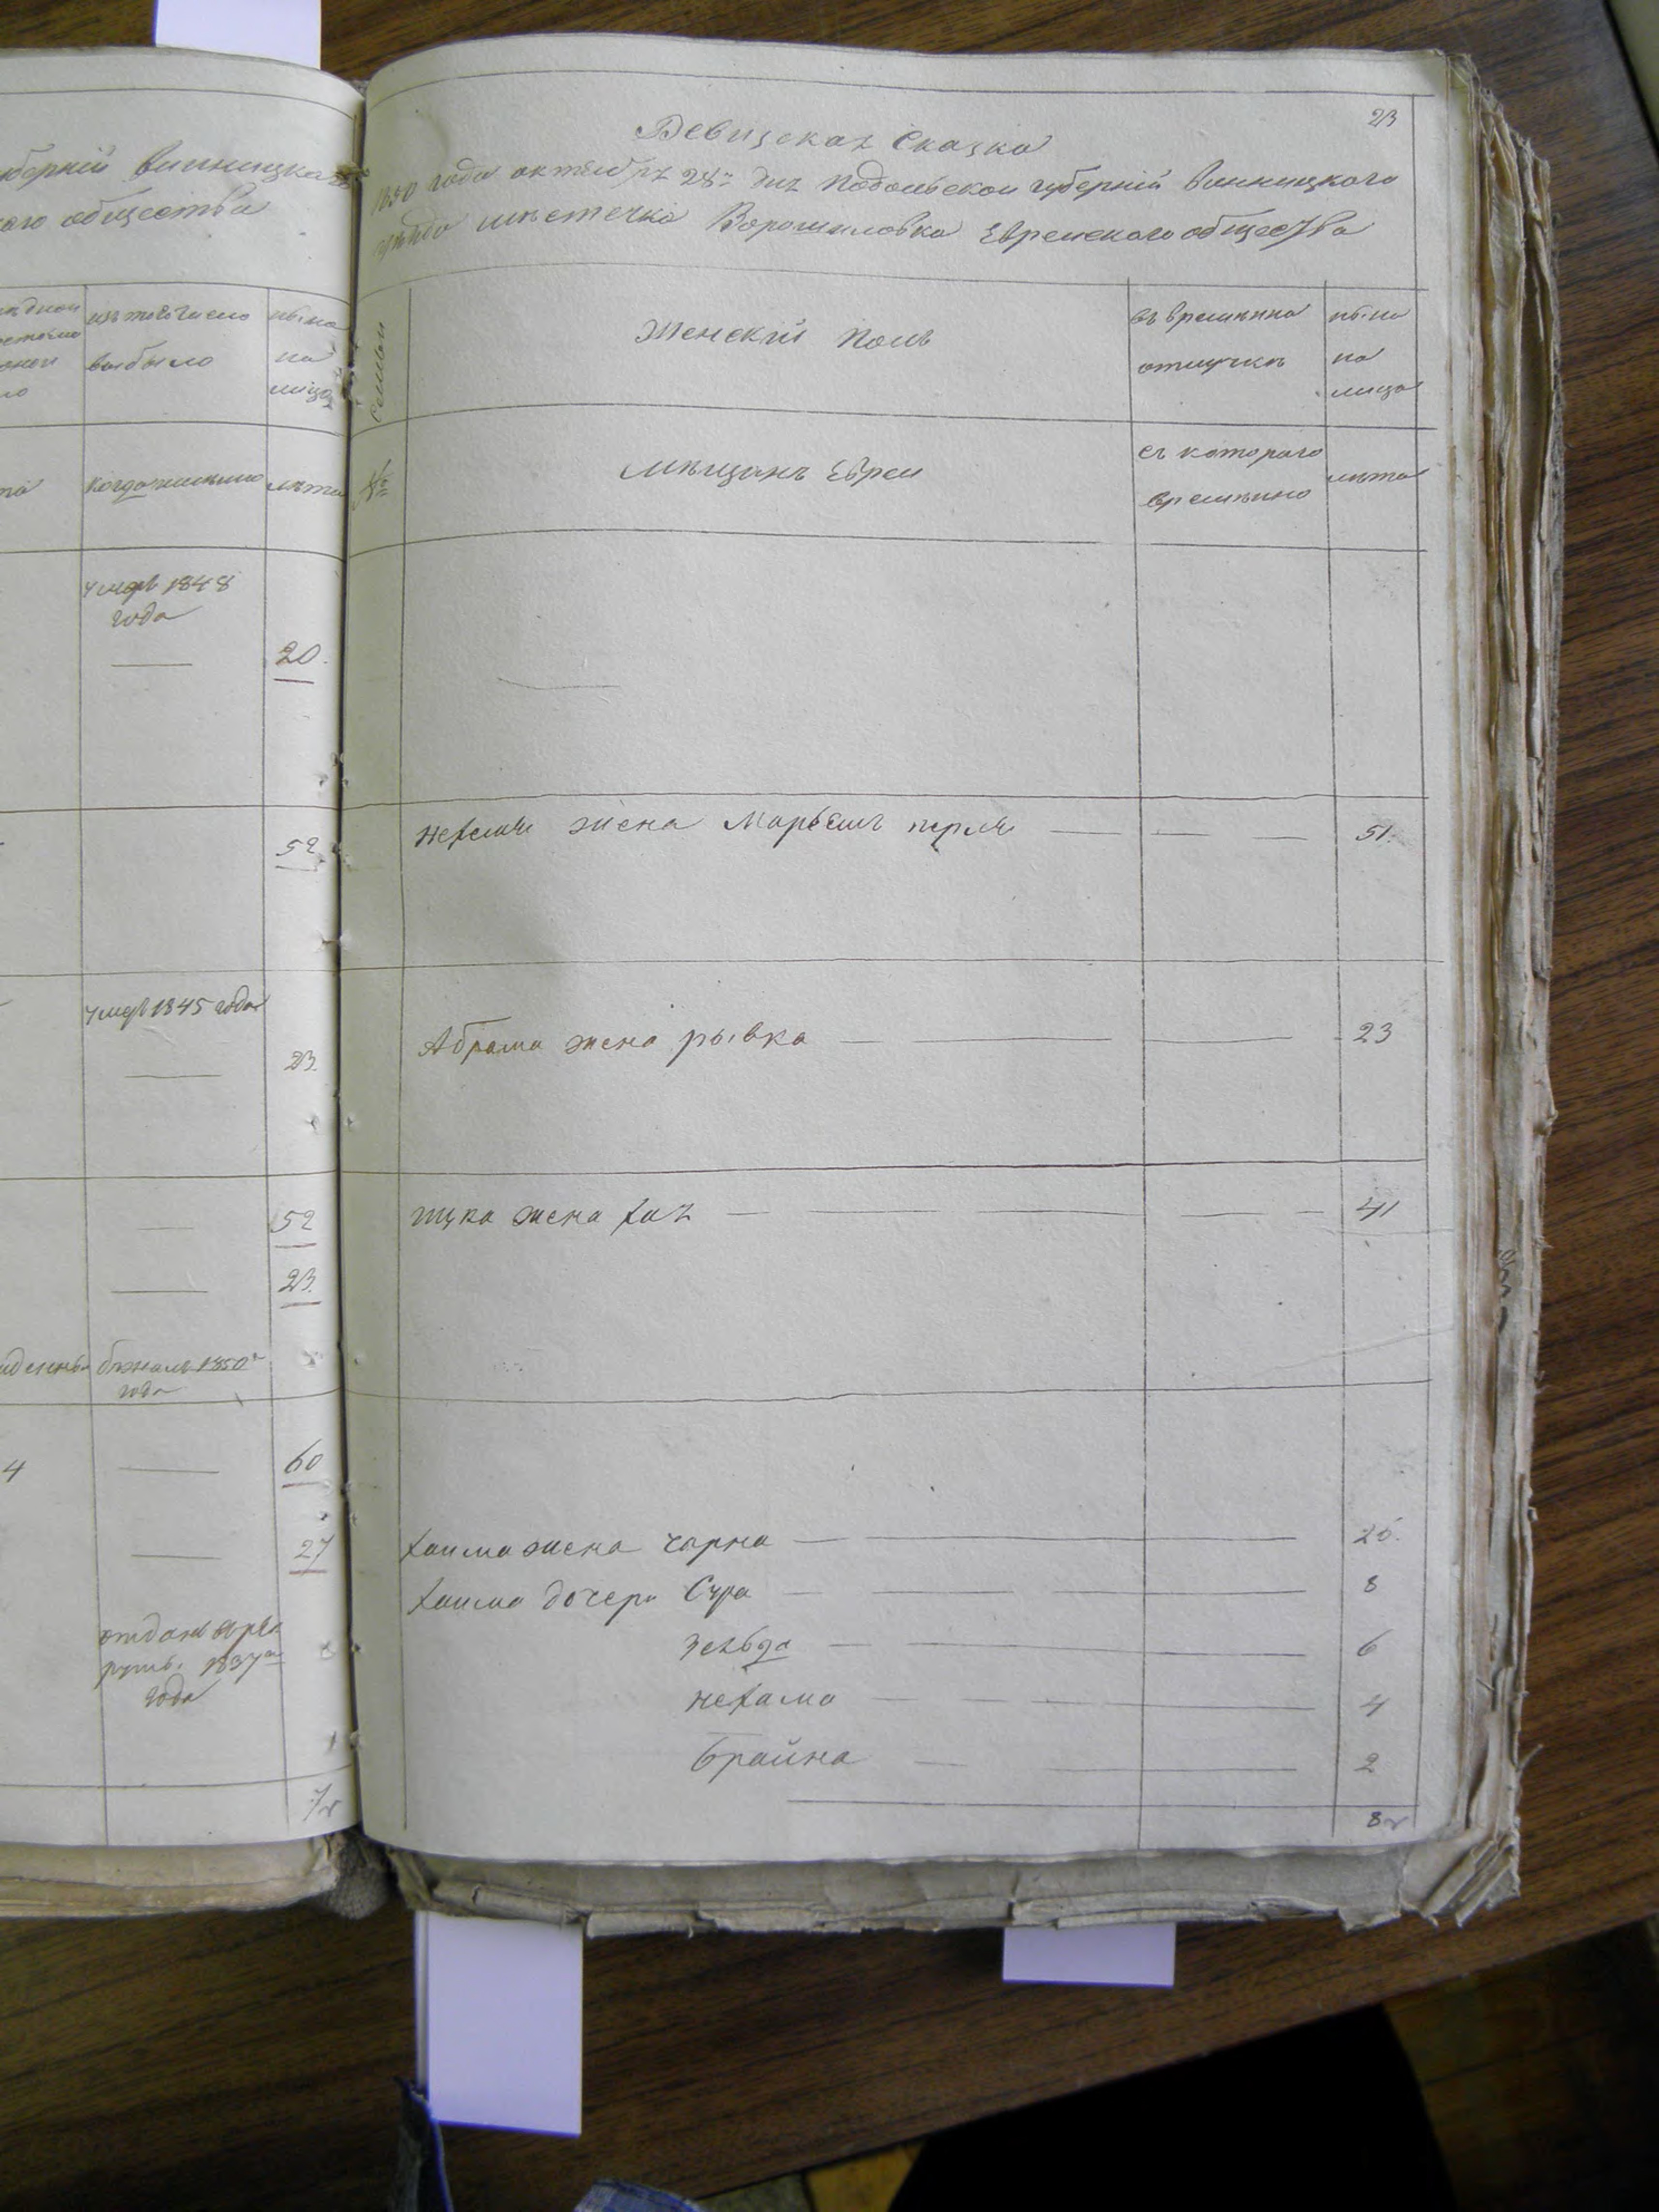 губерній винницкаго
каго общества
изъ того числа
выбыло
ныне
на
лицо
когда именно
лета
умеръ 1848
года
20.
52
умеръ 1845 года
23.
52
23.
бежалъ 1850го
года
4
60
27
отданъ въ рек
рутъ. 1837го
года
7
23
Ревизская Сказка
1850 года октября 28го дня Подольской губерній винницкого
уезда местечка Ворошиловка Еврейского общества
Семьи
Женский Полъ
въ временной
отлучке
ныне
на
лицо
№
мещанъ Евреи
съ которого
времянино
лета
жена Марьемъ перля 51.
Абрама жена рывка 23
ицка жена хая 41
хаима жена чарна 26.
хаима дочери Сура 8
зельда 6
нехама 4
брайна 2
8